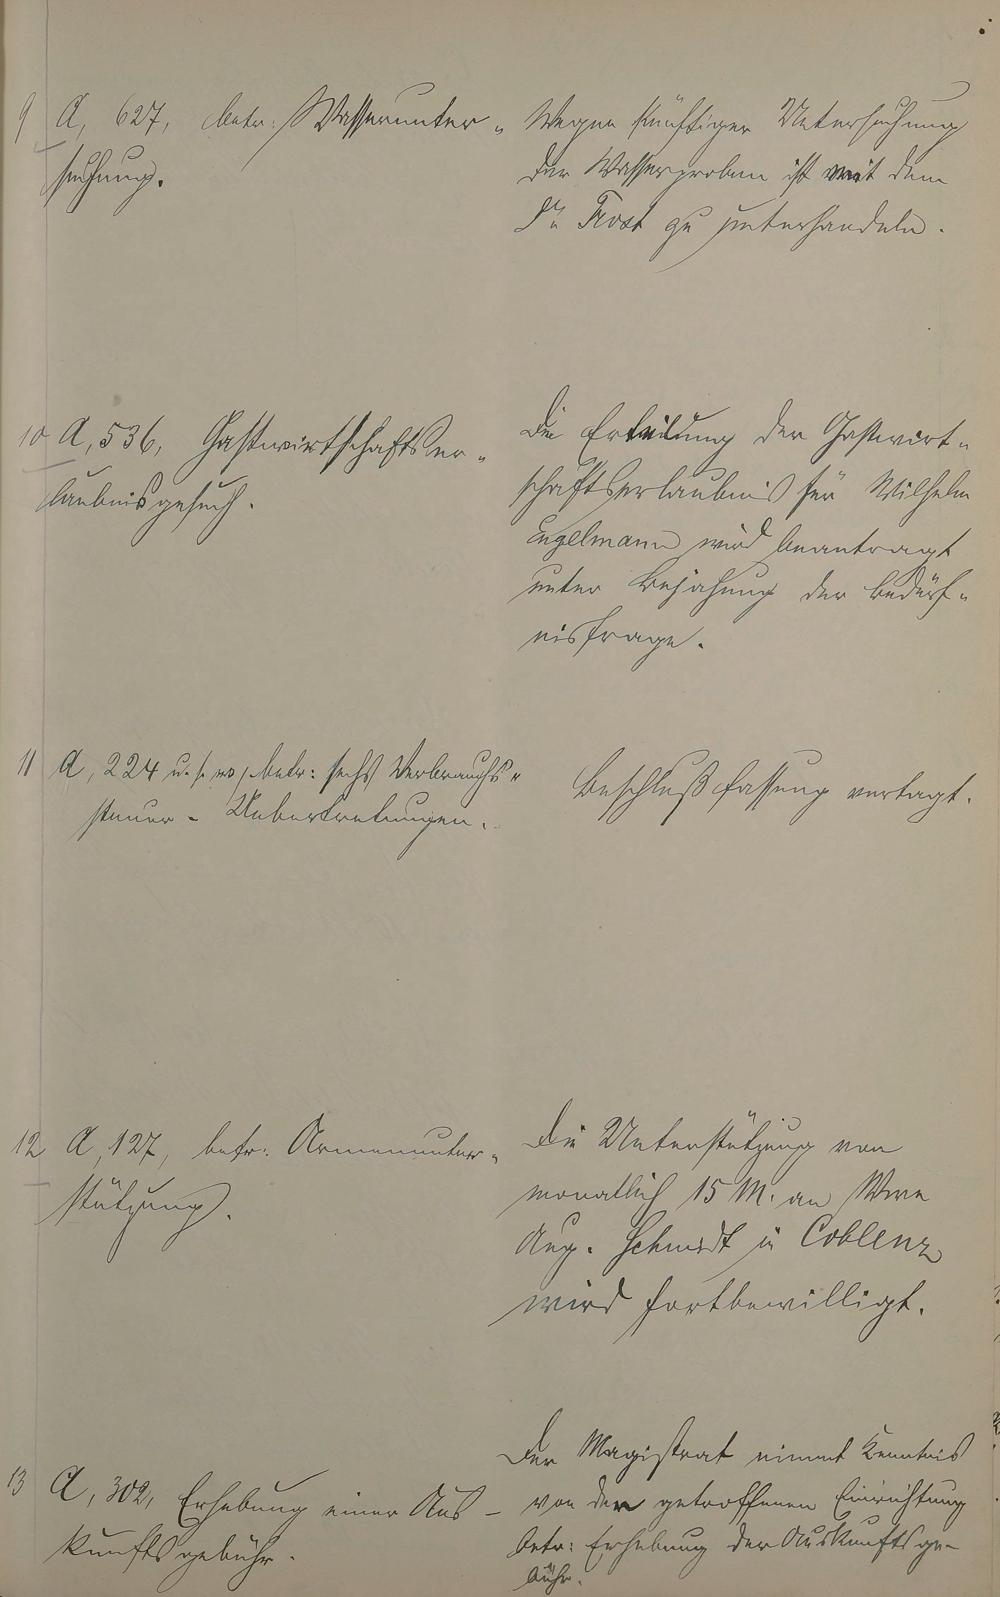 9 A, 627, betr: Wasserunter-
suchung.
Wegen künftiger Untersuchung
der Wasserproben ist mit dem
Dr. Trost zu unterhandeln.
10 A, 536, Gastwirtschaftser-
laubnisgesuch.
Die Erteilung der Gastwirt-
schaftserlaubnis für Wilhelm
Engelmann wird beantragt
unter Bejahung der Bedürf-
nisfrage.
11 A, 224 u. s. w, betr: sechs Verbrauchs-
steuer-Uebertretungen.
Beschlußfassung vertagt.
12 A, 127, betr: Armenunter-
stützung.
Die Unterstützung von
monatlich 15 M. an Wwe
Aug. Schmidt in Coblenz
wird fortbewilligt.
13 A, 302, Erhebung einer Aus-
kunftsgebühr.
Der Magistrat nimmt Kenntnis
von der getroffenen Einrichtung
betr: Erhebung der Auskunftsge-
bühr.